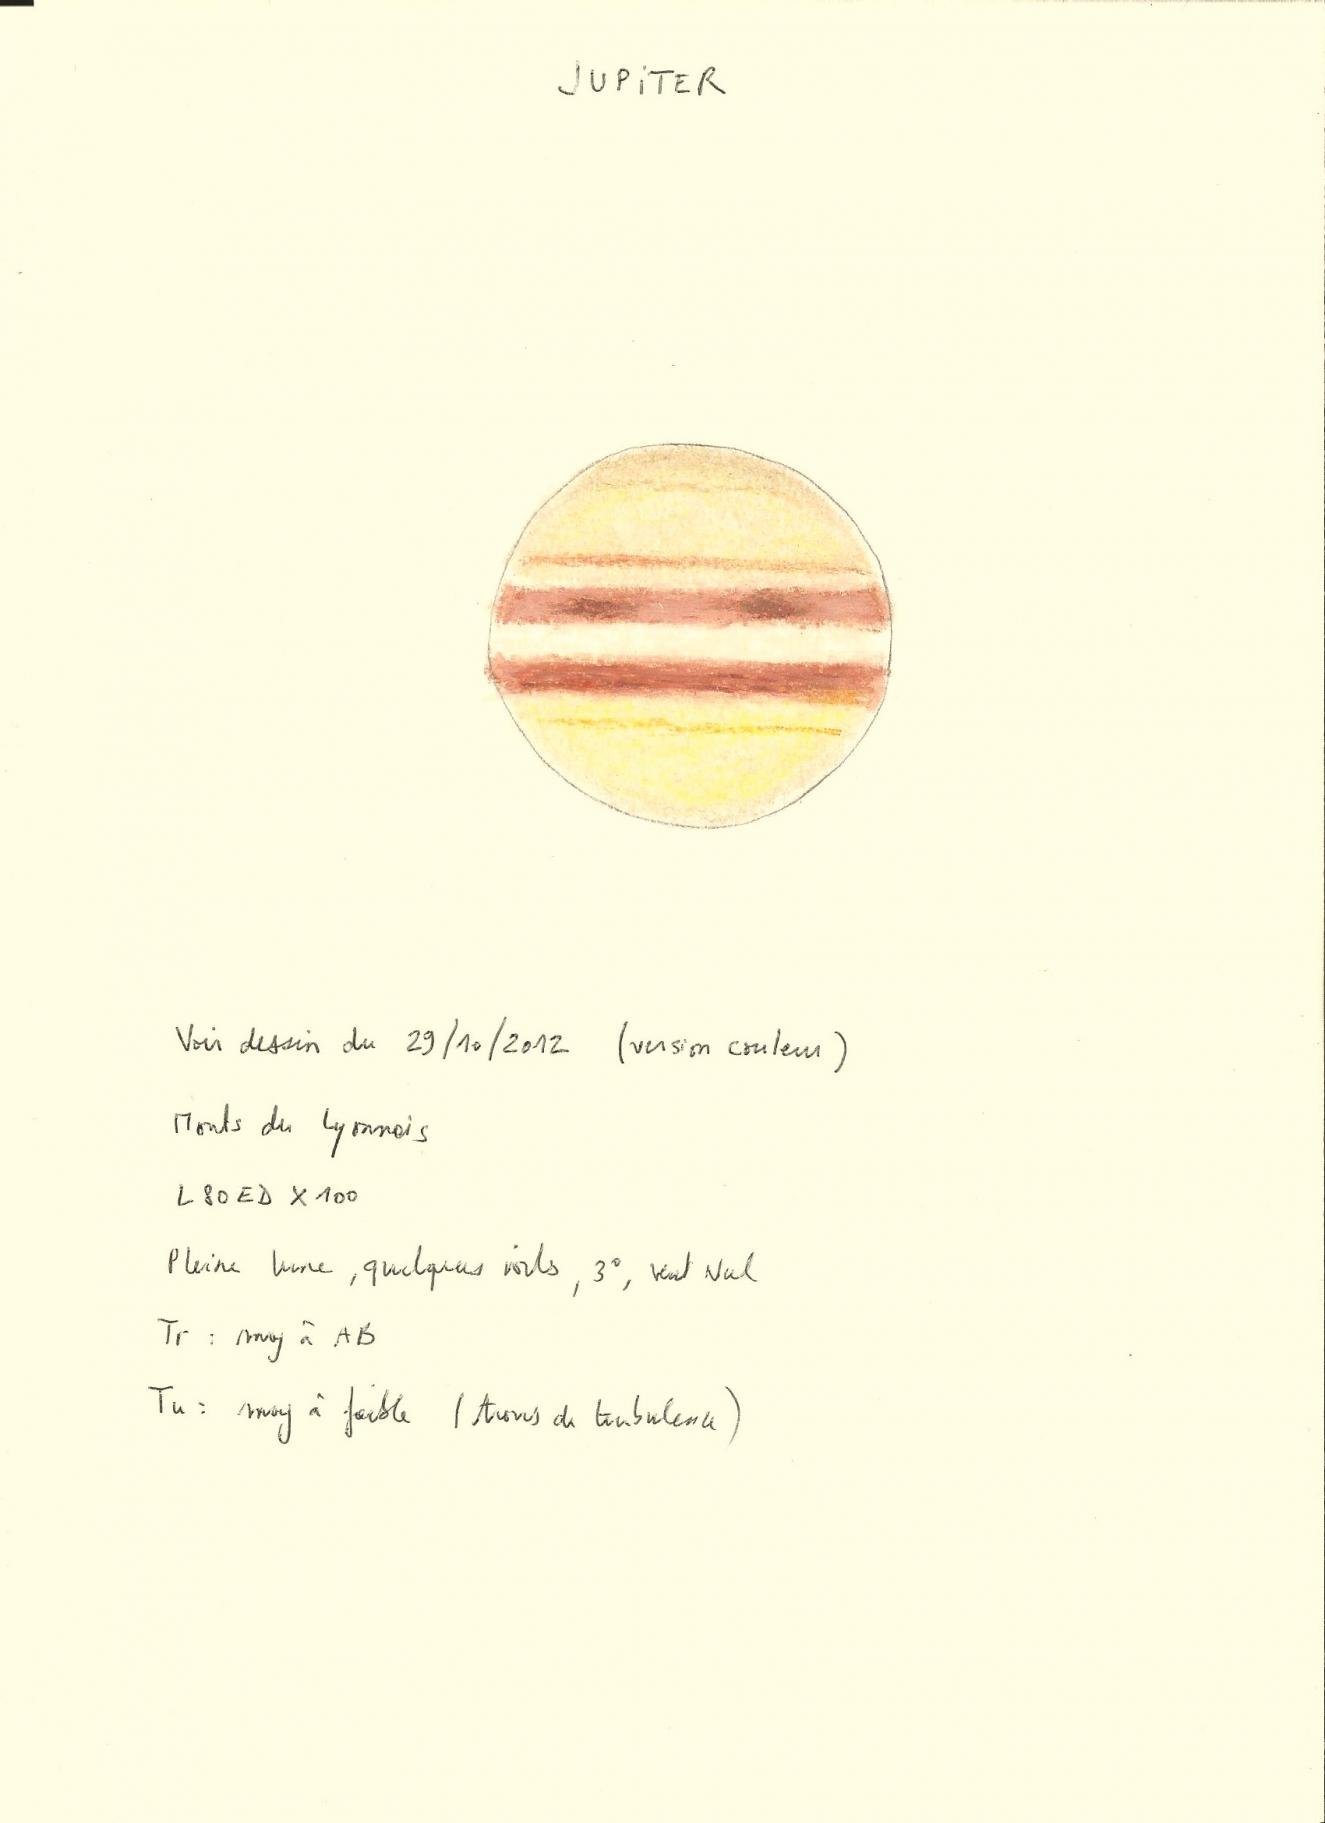 JUPiTER
Voir dessin du 29/10/2012 (version couleur)
Monts du Lyonnais
L80ED X100
Pleine lune, quelques voils, 3°, vent Nul
Tr : moy à AB
Tu : moy à faible (trous de turbulence)